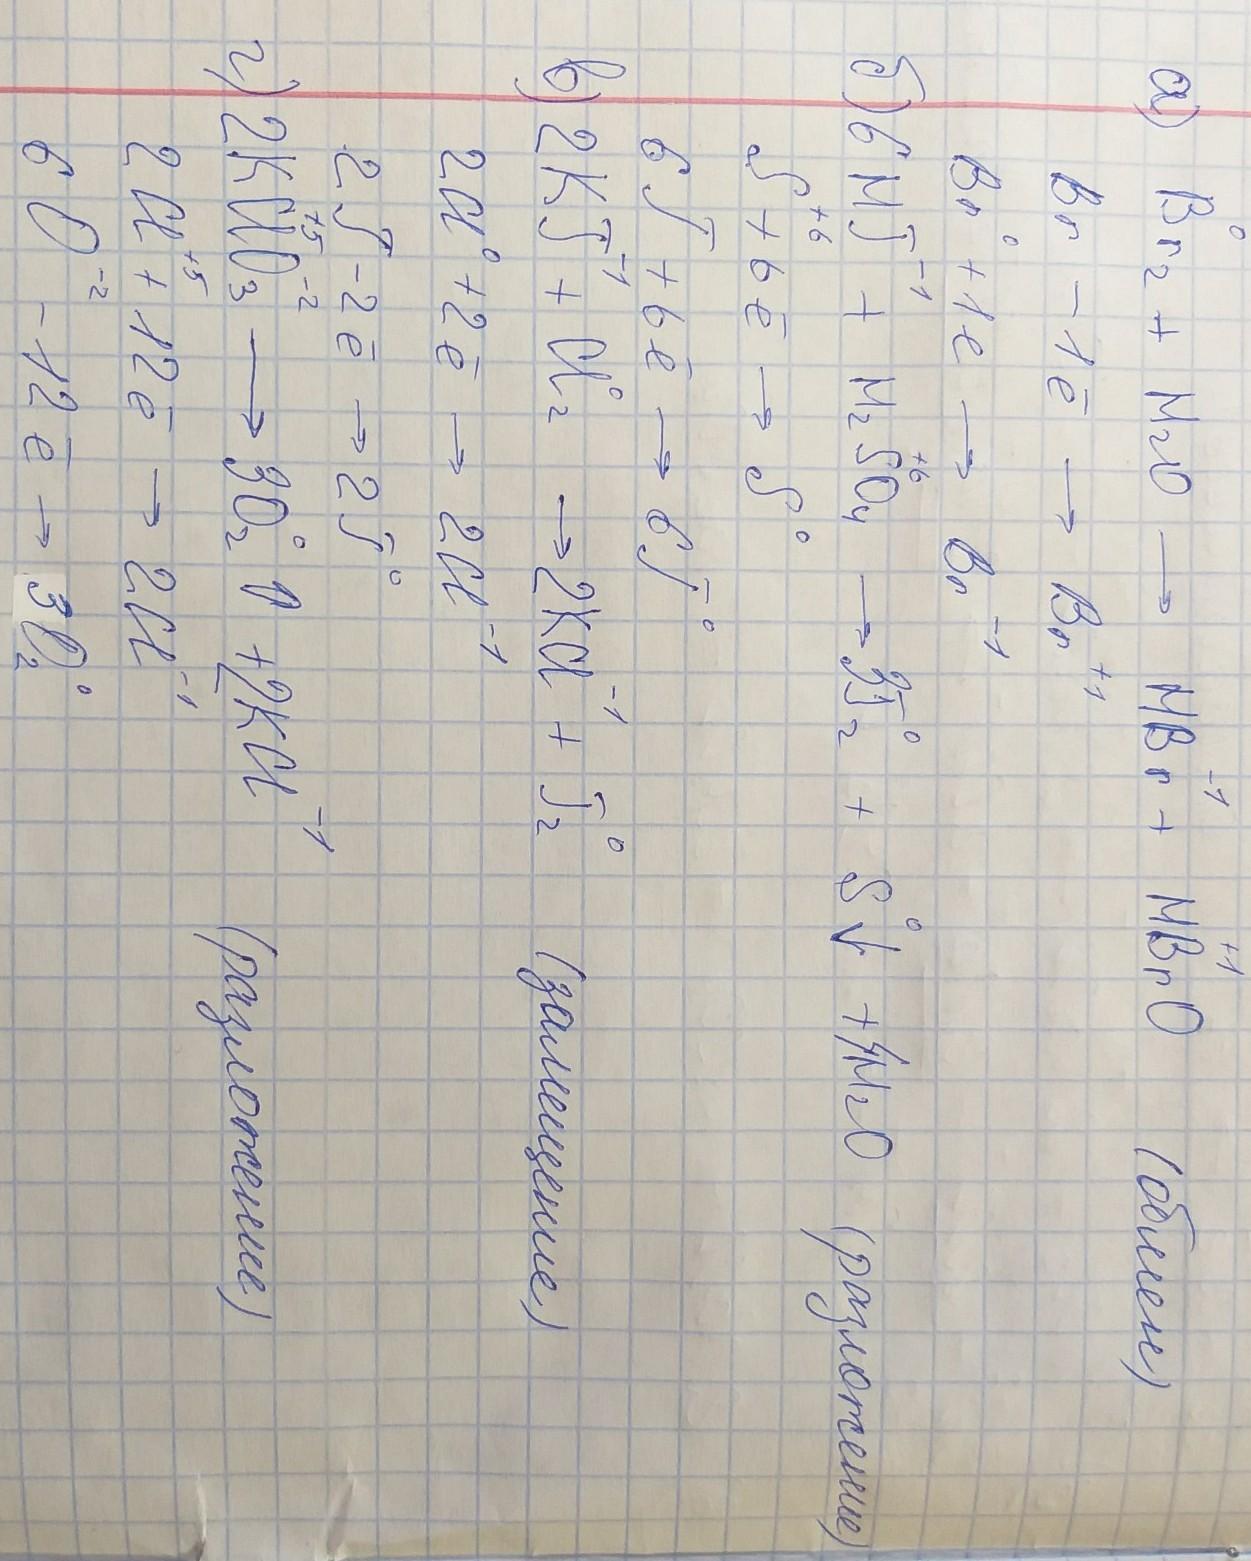 а) Br₂⁰ + H₂O → HBr⁻¹ + HBr⁺¹O (обмен)
Br - 1ē → Br⁺¹
Br⁰ + 1e → Br⁻¹
б) 6HJ⁻¹ + H₂S⁺⁶O₄ → 3J₂⁰ + S⁰↓ + 4H₂O (разложение)
S⁺⁶ + 6ē → S⁰
6J + 6ē → 6J⁰
в) 2KJ⁻¹ + Cl₂⁰ → 2KCl⁻¹ + J₂⁰ (замещение)
2Cl⁰ + 2ē → 2Cl⁻¹
2J - 2ē → 2J⁰
г) 2KCl⁺⁵O₃⁻² → 3O₂⁰↑ + 2KCl⁻¹ (разложение)
2Cl⁺⁵ + 12ē → 2Cl⁻¹
6O⁻² - 12ē → 3O₂⁰